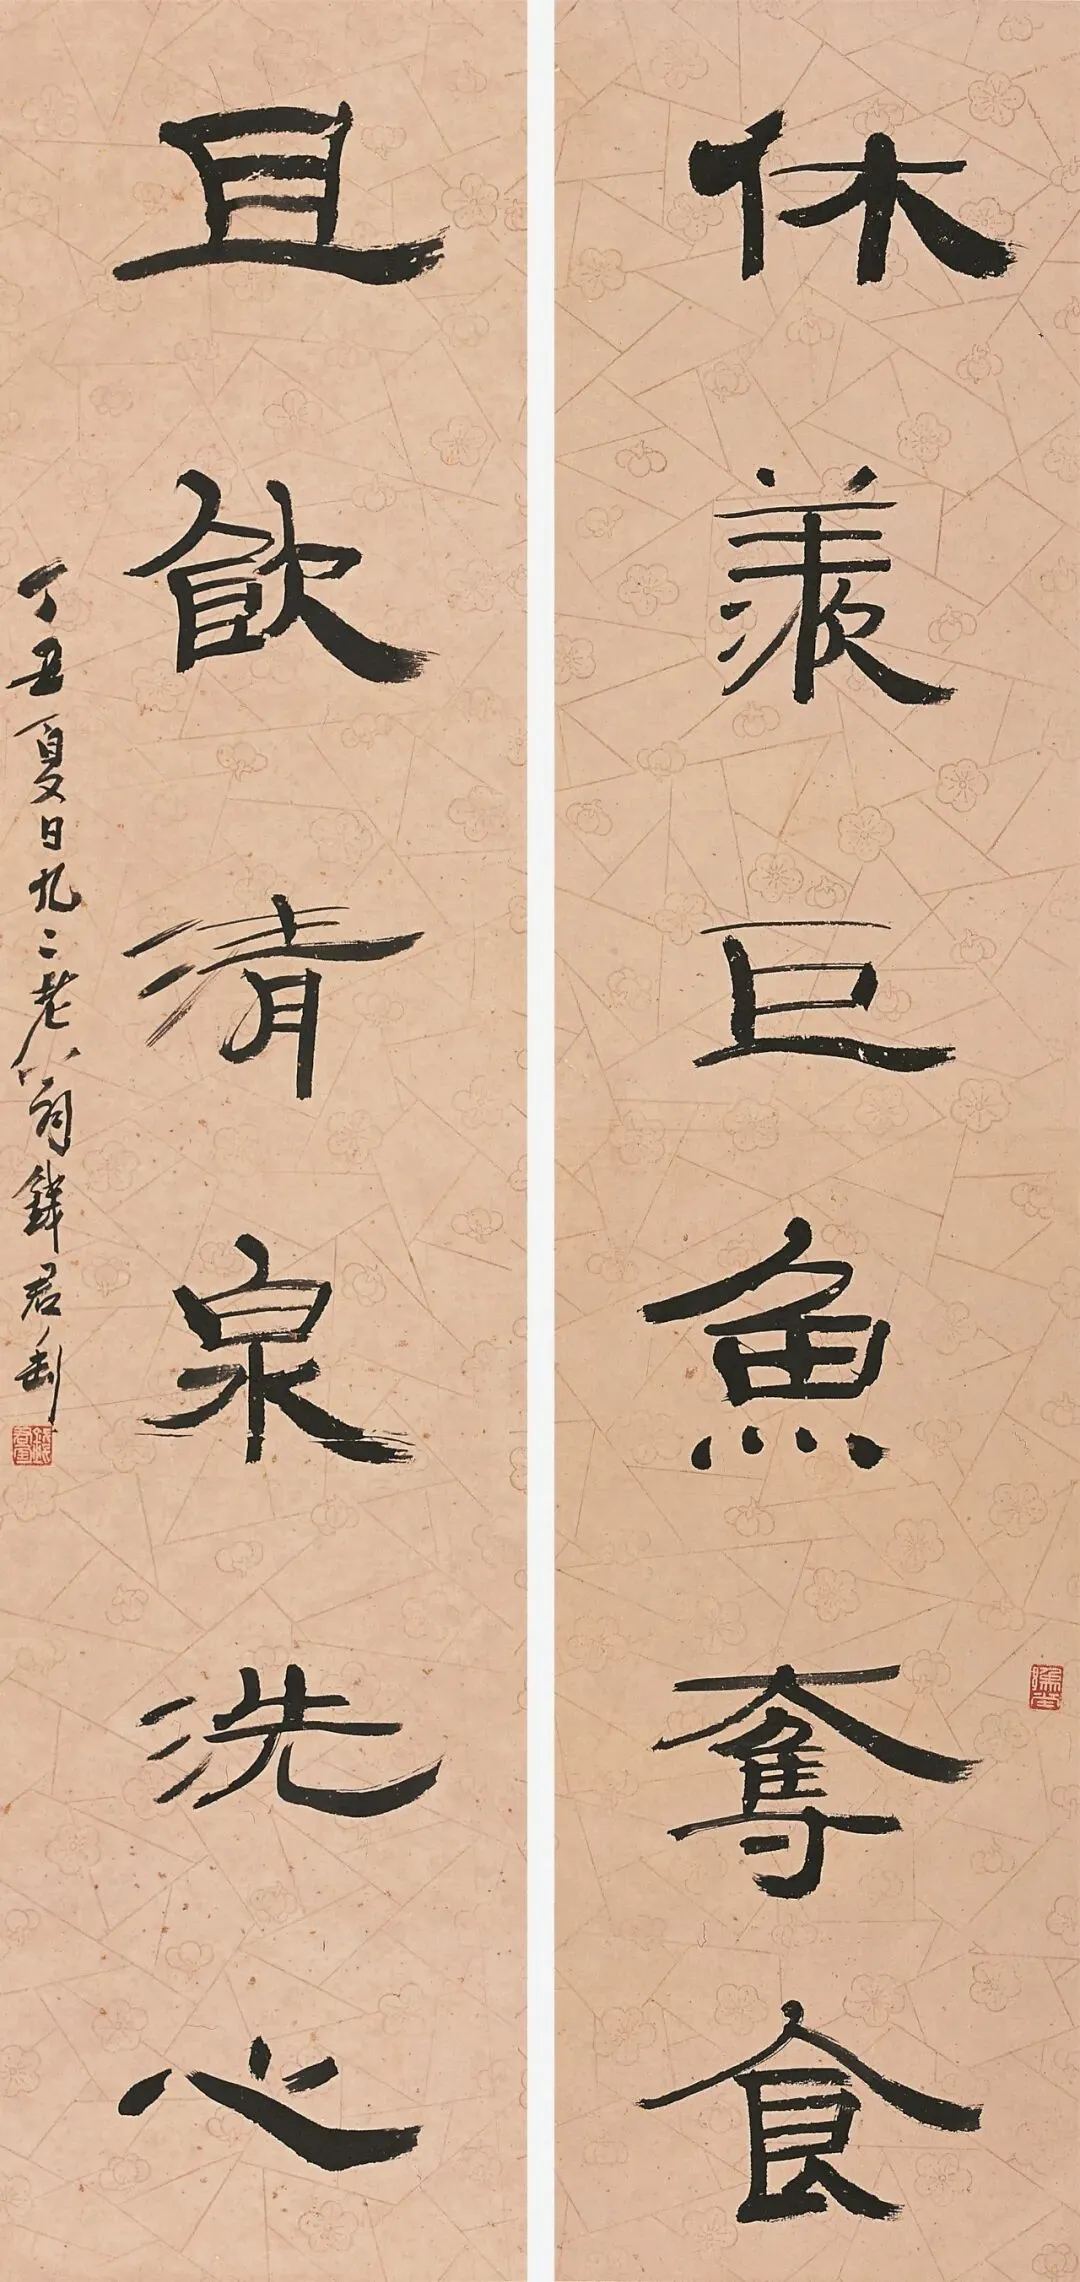 休羨巨魚奪食
且飲清泉洗心
丁丑夏日九二老翁錢君匋